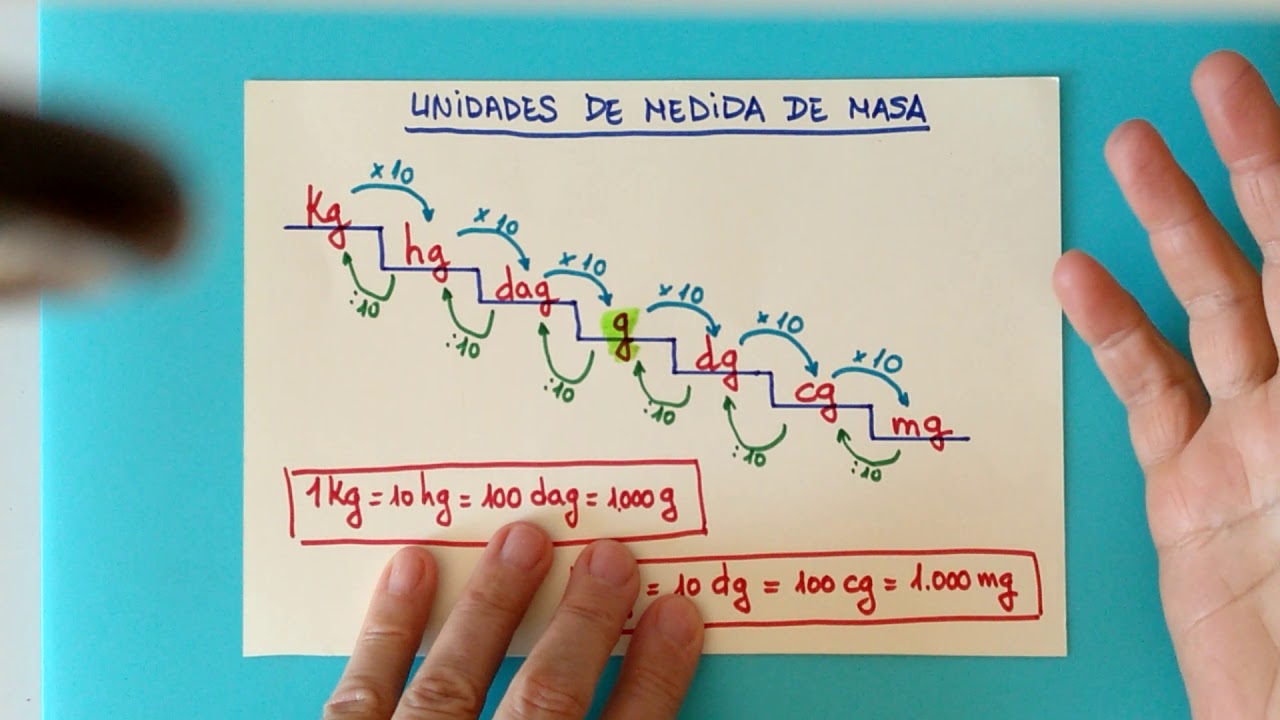 UNIDADES DE MEDIDA DE MASA
x 10
Kg
x 10
hg
x 10
dag
x 10
g
x 10
dg
x 10
cg
mg
:10
:10
:10
:10
:10
:10
1 Kg = 10 hg = 100 dag = 1.000 g
= 10 dg = 100 cg = 1.000 mg